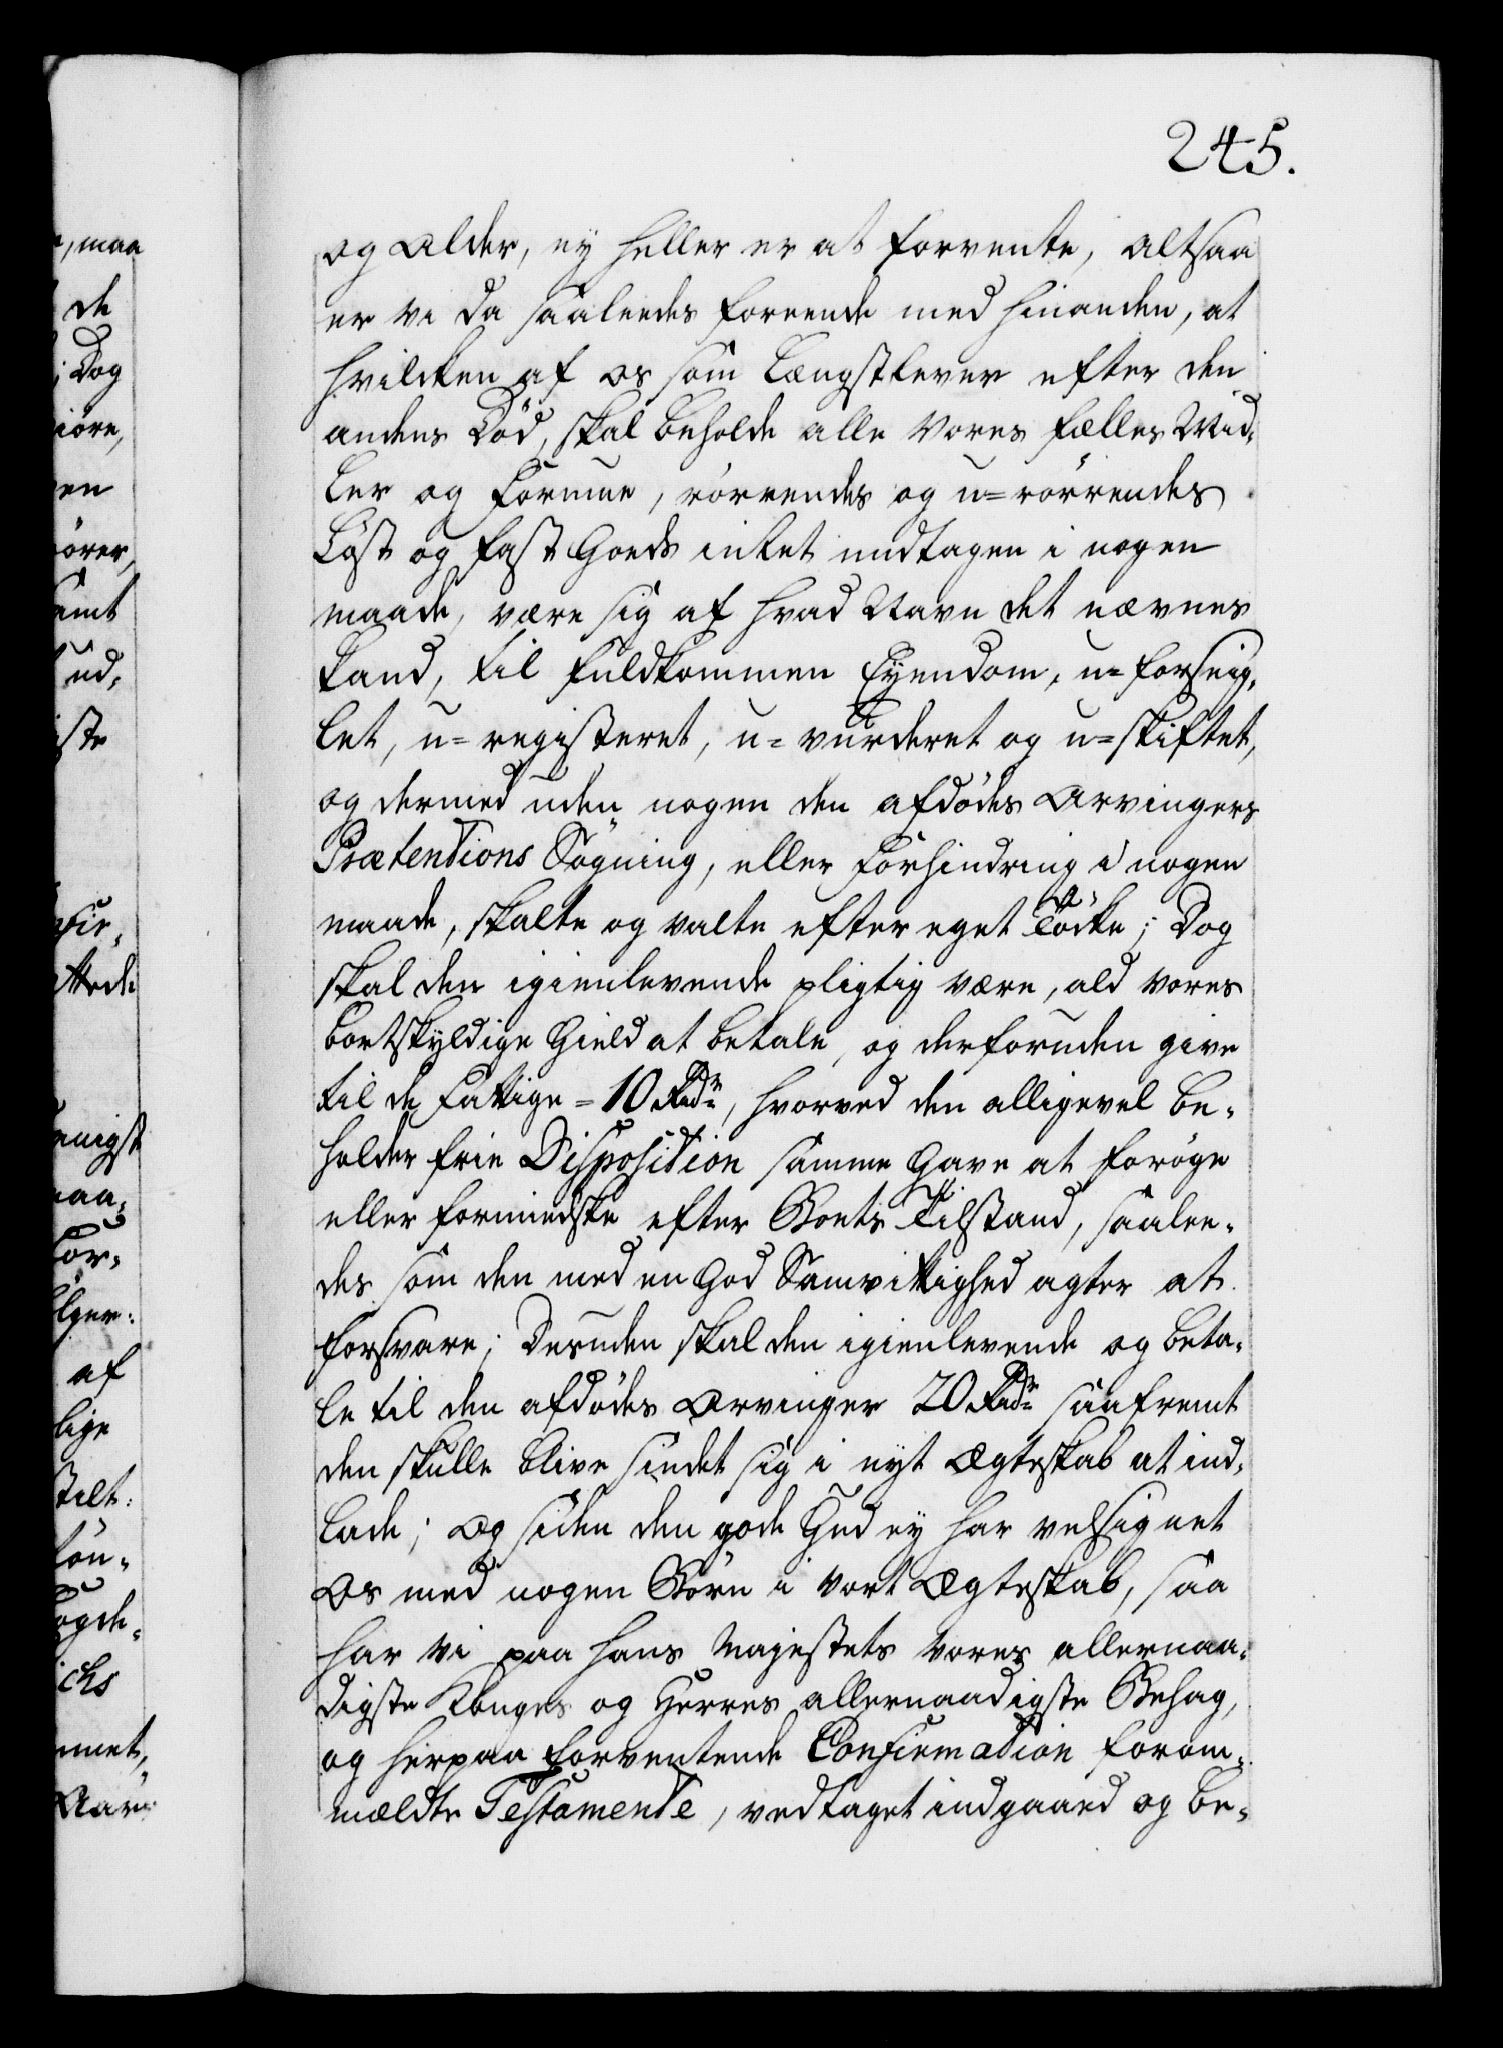 245.
og Alder, ey heller er at forvente, altsaa
er vi da saaleedes foreende med hinanden, at
hvilcken af os som Længstlever efter den
andens Död, skal beholde alle Vores fælles Mid-
ler og Formue, rörrendes og u=rörrendes
Löst og fast Goeds intet undtagen i nogen
maade, være sig af hvad Navn det nævnes
kand, til fuldkommen Eyendom, u=forseig-
let, u=registeret, u=vurderet og u=skiftet,
og dermed uden nogen den afdödes Arvingers
Prætentions Sögning, eller Forhindring i nogen
maade, skalte og valte efter eget Töcke; Dog
skal den igienlevende pligtig være, ald vores
bortskyldige Gield at betale, og derforuden give
til de Fattige = 10 Rdr, hvorved den alligevel be-
holder frie Disposition samme Gave at foröge
eller formindske efter Boets Tilstand, saalee-
des som den med en God Samvittighed agter at
forsvare; Desuden skal den igienlevende og beta-
le til den afdödes Arvinger 20 Rdr saafremt
den skulle blive sindet sig i nyt Ægteskab at ind-
lade; Og siden den gode Gud ey har velsignet
Os med nogen Börn i vort Ægteskab, saa
har vi paa Hans Majestets Vores allernaa-
digste Konges og Herres allernaadigste Behag,
og herpaa forventende Confirmation forom-
mældte Testamente, vedtaget indgaaed og be-